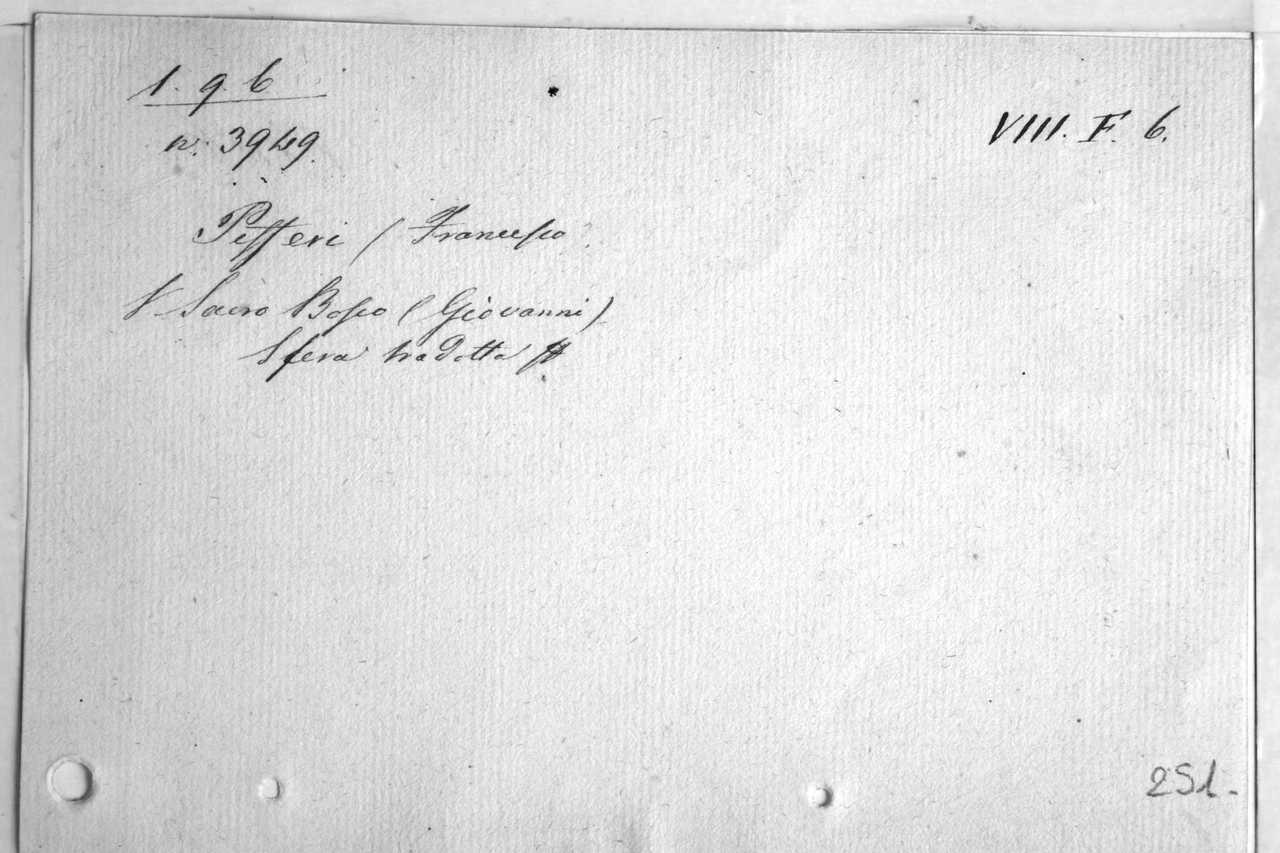 1. 9. 6
n. 3949.
VIII. F. 6.
Pifferi (Francesco
V Sacro Bosco (Giovanni)
Sfera tradotta
251.